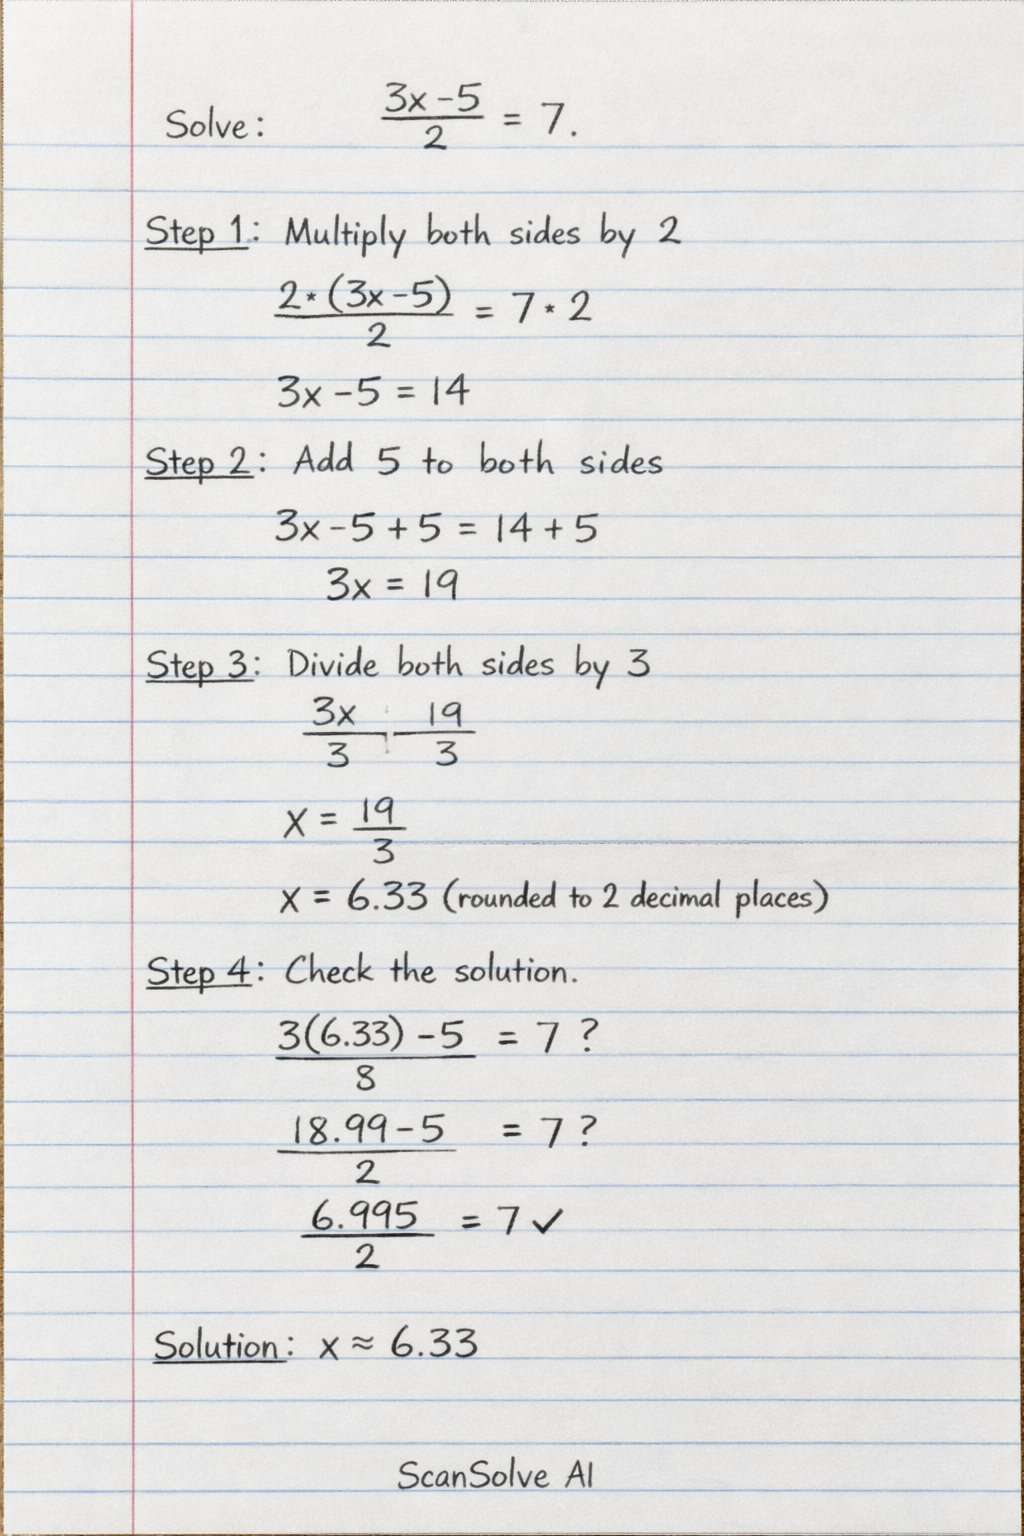 Solve: (3x - 5)/2 = 7.
Step 1: Multiply both sides by 2
2 * (3x - 5)/2 = 7 * 2
3x - 5 = 14
Step 2: Add 5 to both sides
3x - 5 + 5 = 14 + 5
3x = 19
Step 3: Divide both sides by 3
3x/3 19/3
x = 19/3
x = 6.33 (rounded to 2 decimal places)
Step 4: Check the solution.
(3(6.33) - 5)/8 = 7 ?
(18.99 - 5)/2 = 7 ?
6.995/2 = 7 ✓
Solution: x ≈ 6.33
ScanSolve AI